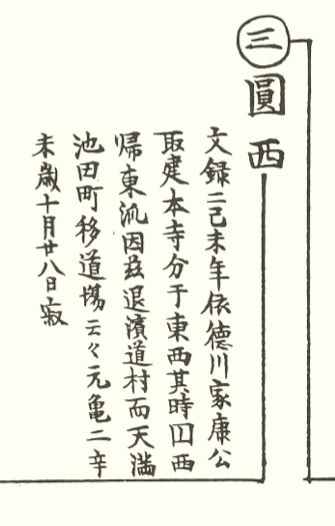 三
圓西
文録二己未年依德川家康公
取建本寺分于東西其時囚西
帰東流因茲退濱道村而天満
池田町移道場云々元亀二辛
未歳十月廿八日寂